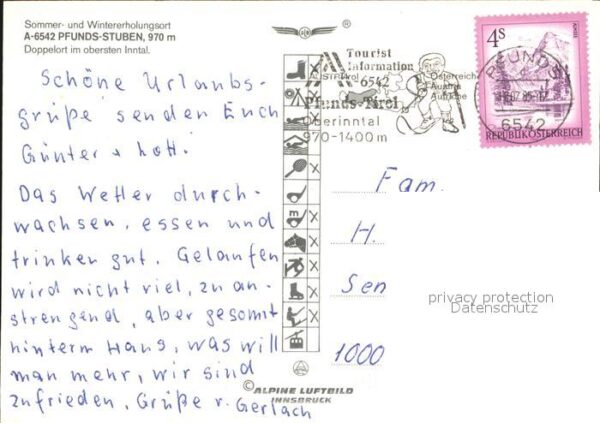 Sommer- und Wintererholungsort
A-6542 PFUNDS-STUBEN, 970 m
Doppelort im obersten Inntal.
Schöne Urlaubs-
grüße senden Euch
Günter + Lotti.
Das Wetter durch-
wachsen, essen und
trinken gut. Gelaufen
wird nicht viel, zu an-
strengend, aber gesonnt
hinterm Haus, was will
man mehr, wir sind
zufrieden. Grüße v. Gerlach
Tourist
Information
6542
Pfunds-Tirol
Oberinntal
970-1400m
Österreich
Austria
Autriche
4S
PFUNDS
6542
REPUBLIK ÖSTERREICH
Fam.
H.
Sen
1000
privacy protection
Datenschutz
© ALPINE LUFTBILD
INNSBRUCK